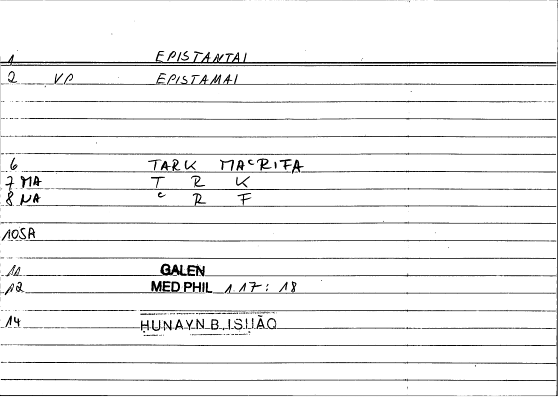 1 EPISTANTAI
2 VP EPISTAMAI
6 TARK MAcRIFA
7 MA T R K
8 NA c R F
10SA
11 GALEN
12 MED PHIL 1 17: 18
14 HUNAYN B.ISḤĀQ